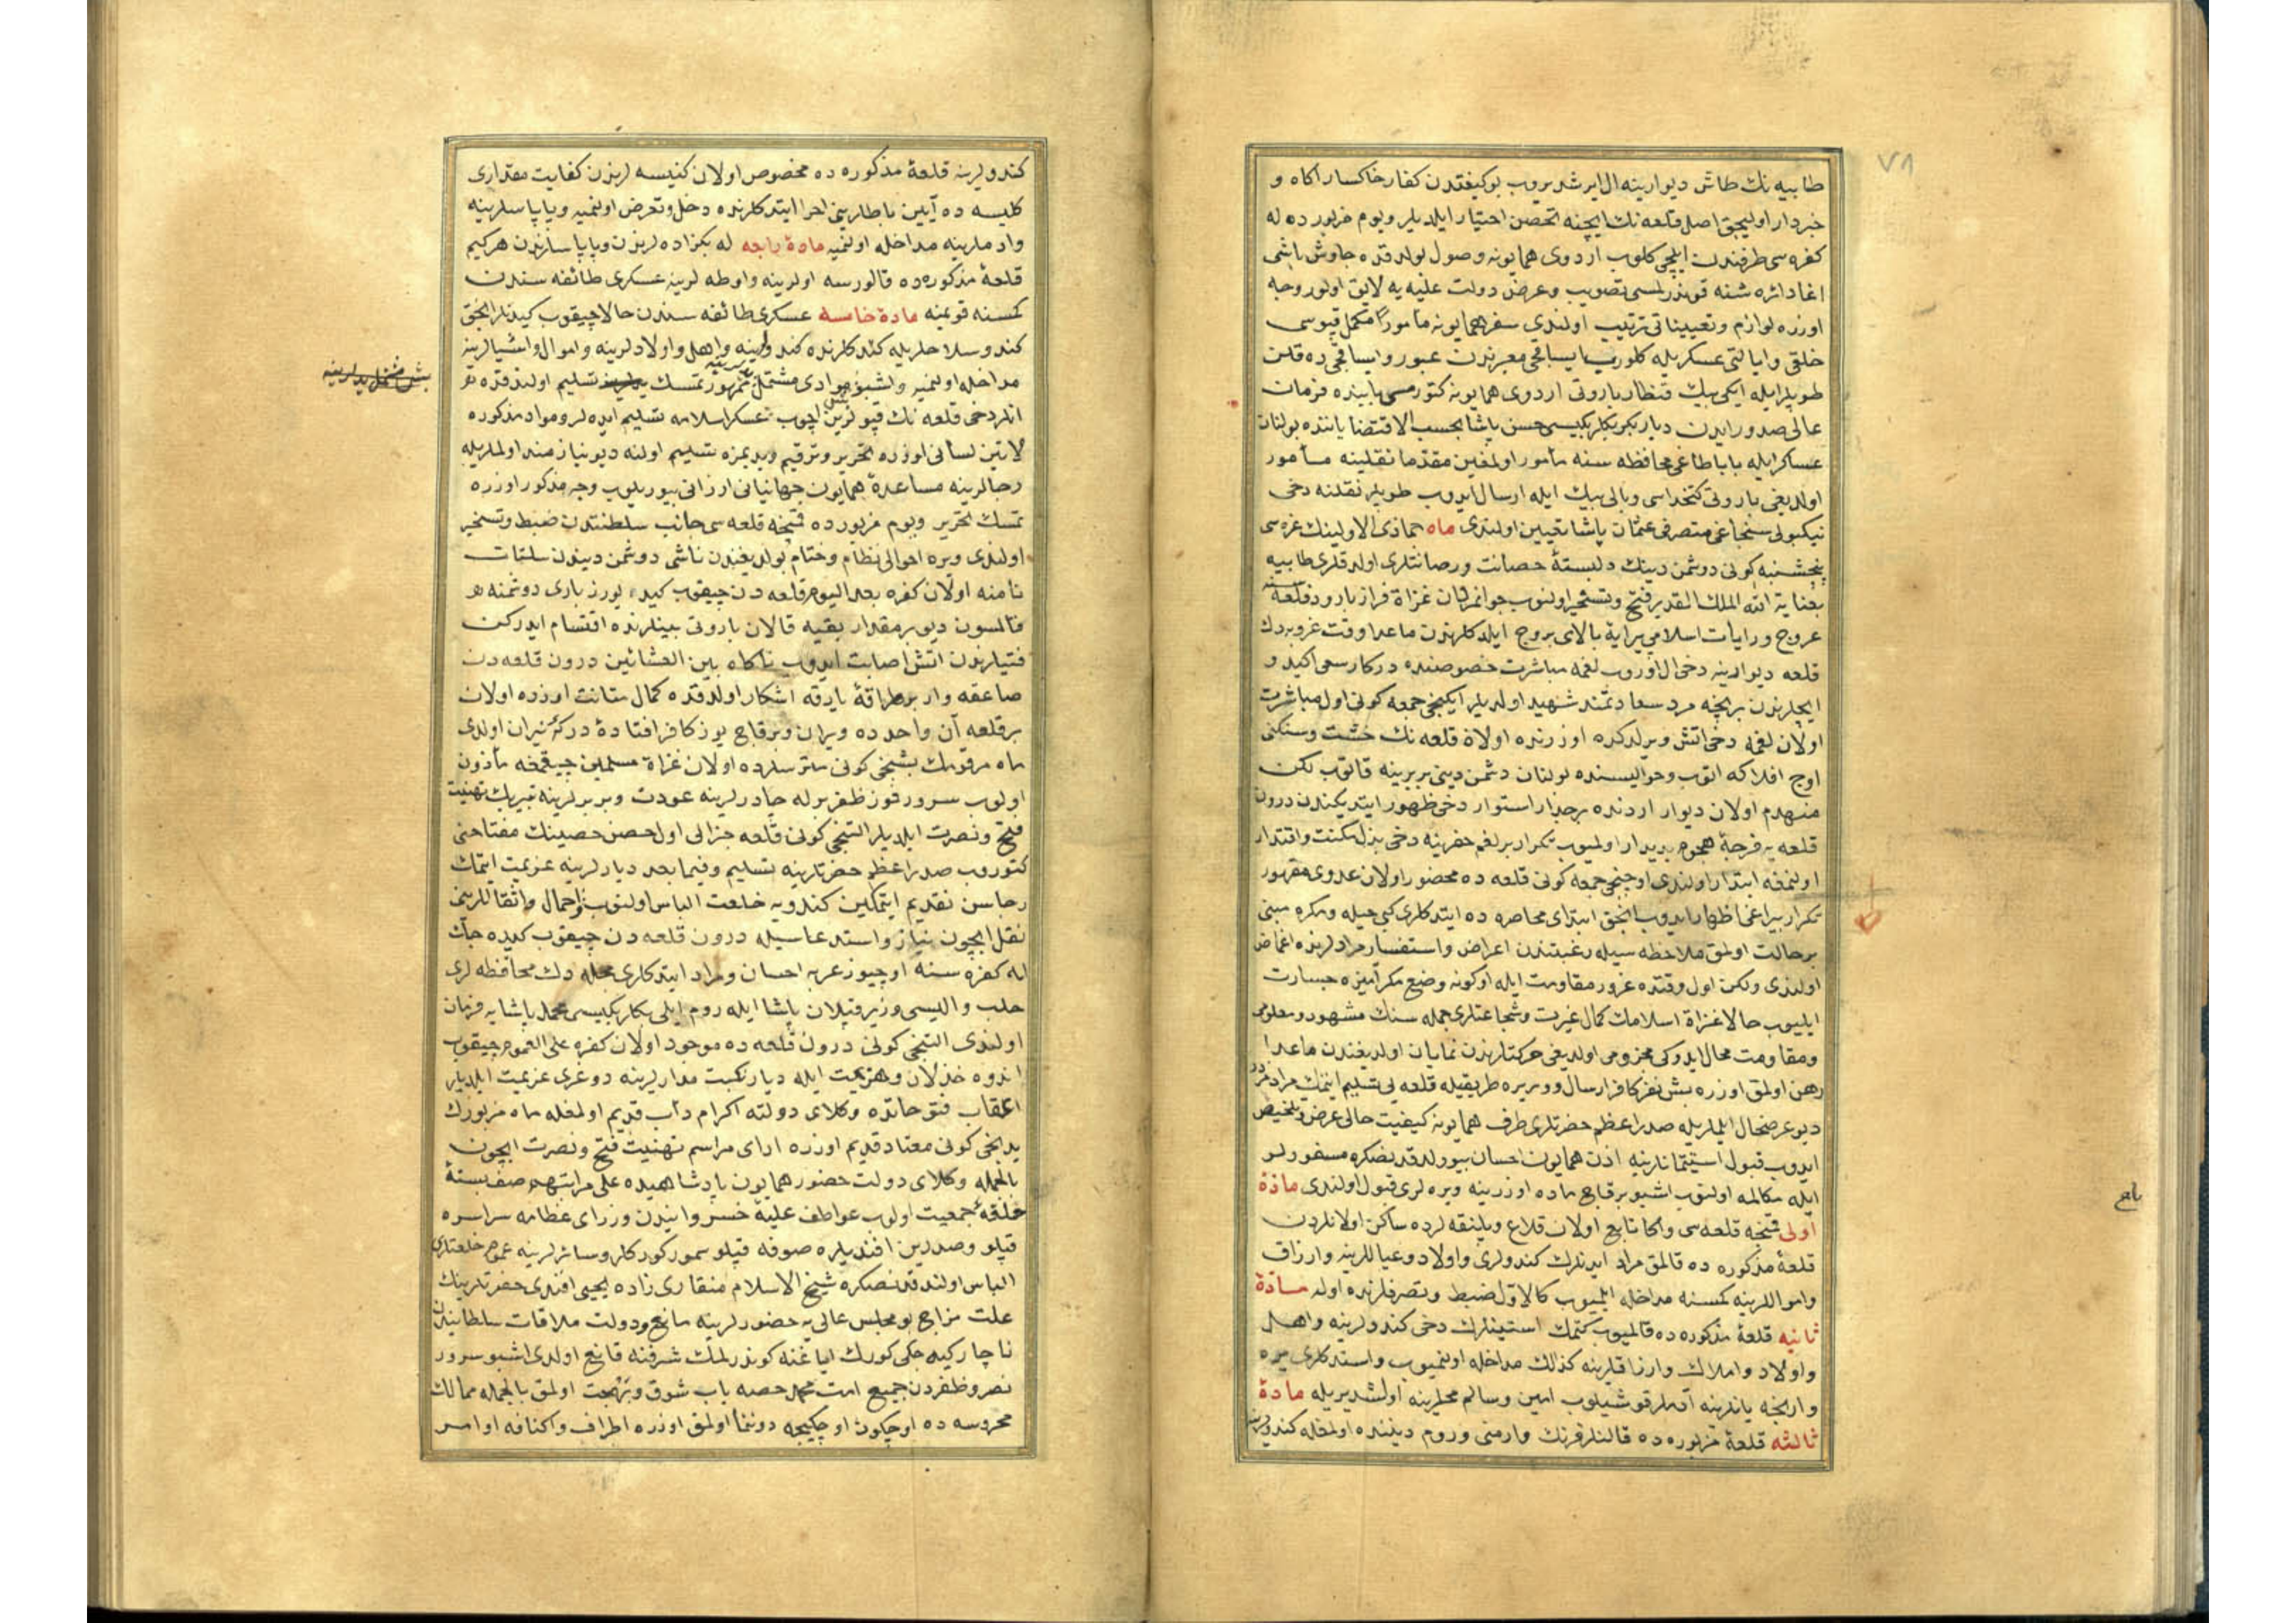 ٧٨
طابیه نك طاش دیوارینه ال ایرشدیروب بو کیفیتدن کفار خاکسار اکاه و
خبردار اولیجق اصل قلعه نك ایچنه تحصن اختیار ایلدیلر ویوم مزبورده له
کفره سی طرفندن ایلچی کلوب اردوی همایونه وصول بولدقده جاوش باشی
اغا دائره سنه قوندرلمسی تصویب وعرض دولت علیه یه لایق اولور وجه
اوزره لوازم وتعییناتی ترتیب اولندی سفر همایونه مأمور مکمل قپوسی
خلقی وایالتی عسکریله کلوب ایساقجی معبرندن عبور وایساقجی ده قلان
طوپلر ایله ایکی بیك قنطار باروتی اردوی همایونه کتورمسی بابنده فرمان
عالی صدور ایدن دیاربکر بکلربکیسی حسن پاشا بحسب الاقتضا یاننده بولنان
عساکر ایله باباطاغی محافظه سنه مأمور اولمغین مقدما نقلینه مأمور
اولدیغی باروتی کتخداسی وبالی بیك ایله ارسال ایدوب طوپلر نقلنه دخی
نیکبولی سنجاغی متصرفی عثمان پاشا تعیین اولندی ماه جماذی الاولینك غره سی
پنجشنبه کونی دوشمن دینك دلبستهٔ حصانت ورصانتلری اولدقلری طابیه
بعنایة الله الملك القدیر فتح وتسخیر اولنوب جوانمردان غزاة فراز بارو وقلعه سنه
عروج ورایات اسلامی پیرایهٔ بالای بروج ایلدکلرندن ماعدا وقت غروبه دك
قلعه دیوارینه دخی ال اوروب لغمه مباشرت خصوصنده درکار سعی اکید و
ایچلرندن بر نچه مرد سعادتمند شهید اولدیلر ایکنجی جمعه کونی اول مباشرت
اولان لغمه دخی اتش ویرلدکده اوزرنده اولان قلعه نك خشت وسنکی
اوج افلاکه اتوب وحوالیسنده بولنان دشمن دینی بربرینه قاتوب لکن
منهدم اولان دیوار اردنده بر جدار استوار دخی ظهور ایتدیکندن درون
قلعه یه فرجهٔ هجوم پدیدار اولمیوب تکرار بر لغم حفرینه دخی بذل مکنت واقتدار
اولنمغه ابتدار اولندی اوچنجی جمعه کونی قلعه ده محصور اولان عدوی مقهور
تکرار بیراغی اظهار ایدوب انجق ابتدای محاصره ده ایتدکلری کبی حیله ومکره مبنی
بر حالت اولمق ملاحظه سیله رغبتدن اعراض واستفسار مرادلرنده اغماض
اولندی ولکن اول وقتده غرور مقاومت ایله اوکونه وضع مکرآمیزه جسارت
ایلیوب حالا غزاة اسلامك کمال غیرت وشجاعتلری جمله سنك مشهود ومعلومی
ومقاومت محال ایدوکی مجزومی اولدیغی حرکتلرندن نمایان اولدیغندن ماعدا
رهن اولمق اوزره بش نفر کافر ارسال وویره طریقیله قلعه یی تسلیم ایتمك مرادمزدر
دیو عرضحال ایلملریله صدر اعظم حضرتلری طرف همایونه کیفیت حالی عرض وتلخیص
ایدوب قبول استیمانلرینه اذن همایون احسان بیورلدقدنصکره مسفورلر
ایله مکالمه اولنوب اشبو برقاچ ماده اوزرینه ویره لری قبول اولندی مادهٔ
اولی قمنچه قلعه سی واکا تابع اولان قلاع وپلنقه لرده ساکن اولانلردن
قلعهٔ مذکوره ده قالمق مراد ایدنلرك کندولری واولاد وعیاللرینه وارزاق
واموالرینه کمسنه مداخله ایلمیوب کالاول ضبط وتصرفلرنده اوله مادهٔ
ثانیه قلعهٔ مذکوره ده قالمیوب کتمك استینلرك دخی کندولرینه واهل
واولاد واملاك وارزاقلرینه کذلك مداخله اولنمیوب واستدکلری یره
وارنجه یانلرینه آدملر قوشیلوب امین وسالم محللرینه اولشدیریله مادهٔ
ثالثه قلعهٔ مزبوره ده قالنلر فرنك وارمنی وروم دیننده اولمغله کندولرینه
باح
کندولرینه قلعهٔ مذکوره ده مخصوص اولان کنیسه لرندن کفایت مقداری
کلیسه ده آیین باطللرینی اجرا ایتدکلرنده دخل وتعرض اولنمیه وپاپاسلرینه
وادملرینه مداخله اولنمیه مادهٔ رابعه له بکزاده لرندن وپاپاسلرندن هر کیم
قلعهٔ مذکوره ده قالورسه اولرینه واوطه لرینه عسکری طائفه سندن
کمسنه قونمیه مادهٔ خامسه عسکری طائفه سندن حالا چیقوب کیدنلر انجق
کندو سلاحلریله کتدکلرنده کندولرینه واهل واولادلرینه واموال واشیالرینه
مداخله اولنمیه واشبو موادی مشتمل ممهور تمسك تسلیم اولندقده
انلر دخی قلعه نك قپولرین اچوب عسکر اسلامه تسلیم ایده لر ومواد مذکوره
لاتین لسانی اوزره تحریر وترقیم ویدیمزه تسلیم اولنه دیو نیازمند اولملریله
رجالرینه مساعدهٔ همایون جهانبانی ارزانی بیوریلوب وجه مذکور اوزره
تمسك تحریر ویوم مزبورده قمنچه قلعه سی جانب سلطنتدن ضبط وتسخیر
اولندی ویره احوالی نظام وختام بولدیغندن ناشی دوشمن دیندن سلتات
نامنه اولان کفره بعد الیوم قلعه دن چیقوب کیده یورز باری دوشمنه
قالمسون دیو بر مقدار بقیه قالان باروتی بینلرنده اقتسام ایدرکن
فتیلرندن اتش اصابت ایدوب ناکاه بین العشائین درون قلعه دن
صاعقه وار بر طراقهٔ بارقه اشکار اولدقده کمال متانت اوزره اولان
بر قلعه آن واحدده ویران وبرقاچ یوز کافر افتادهٔ درکهٔ نیران اولدی
ماه مرقومك بشنجی کونی متریسلرده اولان غزاة مسلمین چیقمغه مأذون
اولوب سرور فوز ظفر برله چادرلرینه عودت وبربرلرینه تبریك تهنیت
فتح ونصرت ایلدیلر التنجی کونی قلعه جنرالی اول حصن حصینك مفتاحنی
کتوروب صدر اعظم حضرتلرینه تسلیم وفیما بعد دیارلرینه عزیمت ایتمك
رجاسن تقدیم ایتمکین کندویه خلعت الباس اولنوب احمال واثقاللرینی
نقل ایچون نیاز واستدعاسیله درون قلعه دن چیقوب کیده جك
له کفره سنه اوچیوز عربه احسان ومراد ایتدکلری محله دك محافظه لری
حلب والیسی وزیر قپلان پاشا ایله روم ایلی بکلربکیسی محمد پاشایه فرمان
اولندی التنجی کونی درون قلعه ده موجود اولان کفره علی العموم چیقوب
اندوه خذلان وهزیمت ایله دیار نکبت مدارلرینه دوغری عزیمت ایلدیلر
اعقاب فتوحاتده وکلای دولته اکرام دأب قدیم اولمغله ماه مزبورك
یدنجی کونی معتاد قدیم اوزره ارای مراسم تهنیت فتح ونصرت ایچون
بالجمله وکلای دولت حضور همایون پادشاهیده علی مراتبهم صف بستهٔ
حلقهٔ جمعیت اولوب عواطف علیهٔ خسروانیدن وزرای عظامه سراسره
قپلو وصدرین افندیلره صوفه قپلو سمور کورکلر وسائرلرینه عموم خلعتلری
الباس اولندقدنصکره شیخ الاسلام منقاری زاده یحیی افندی حضرتلرینك
علت مزاجی بو مجلس عالی یه حضورلرینه مانع ودولت ملاقات سلطانیدن
ناچار کیه جکی کورك ایاغنه کوندرلمك شرفنه قانع اولدی اشبو سرور
نصر وظفردن جمیع امت محمد حصه یاب شوق وبهجت اولمق بالجمله ممالك
محروسه ده اوچکون اوچکیجه دوننما اولمق اوزره اطراف واکنافه اوامر